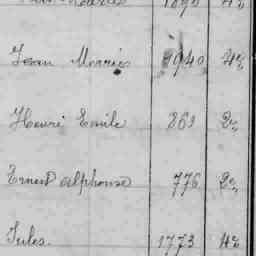 Jean Marius 1940 42
Henri Emile 869 22
Ernest Alphonse 776 22
Jules 1773 42